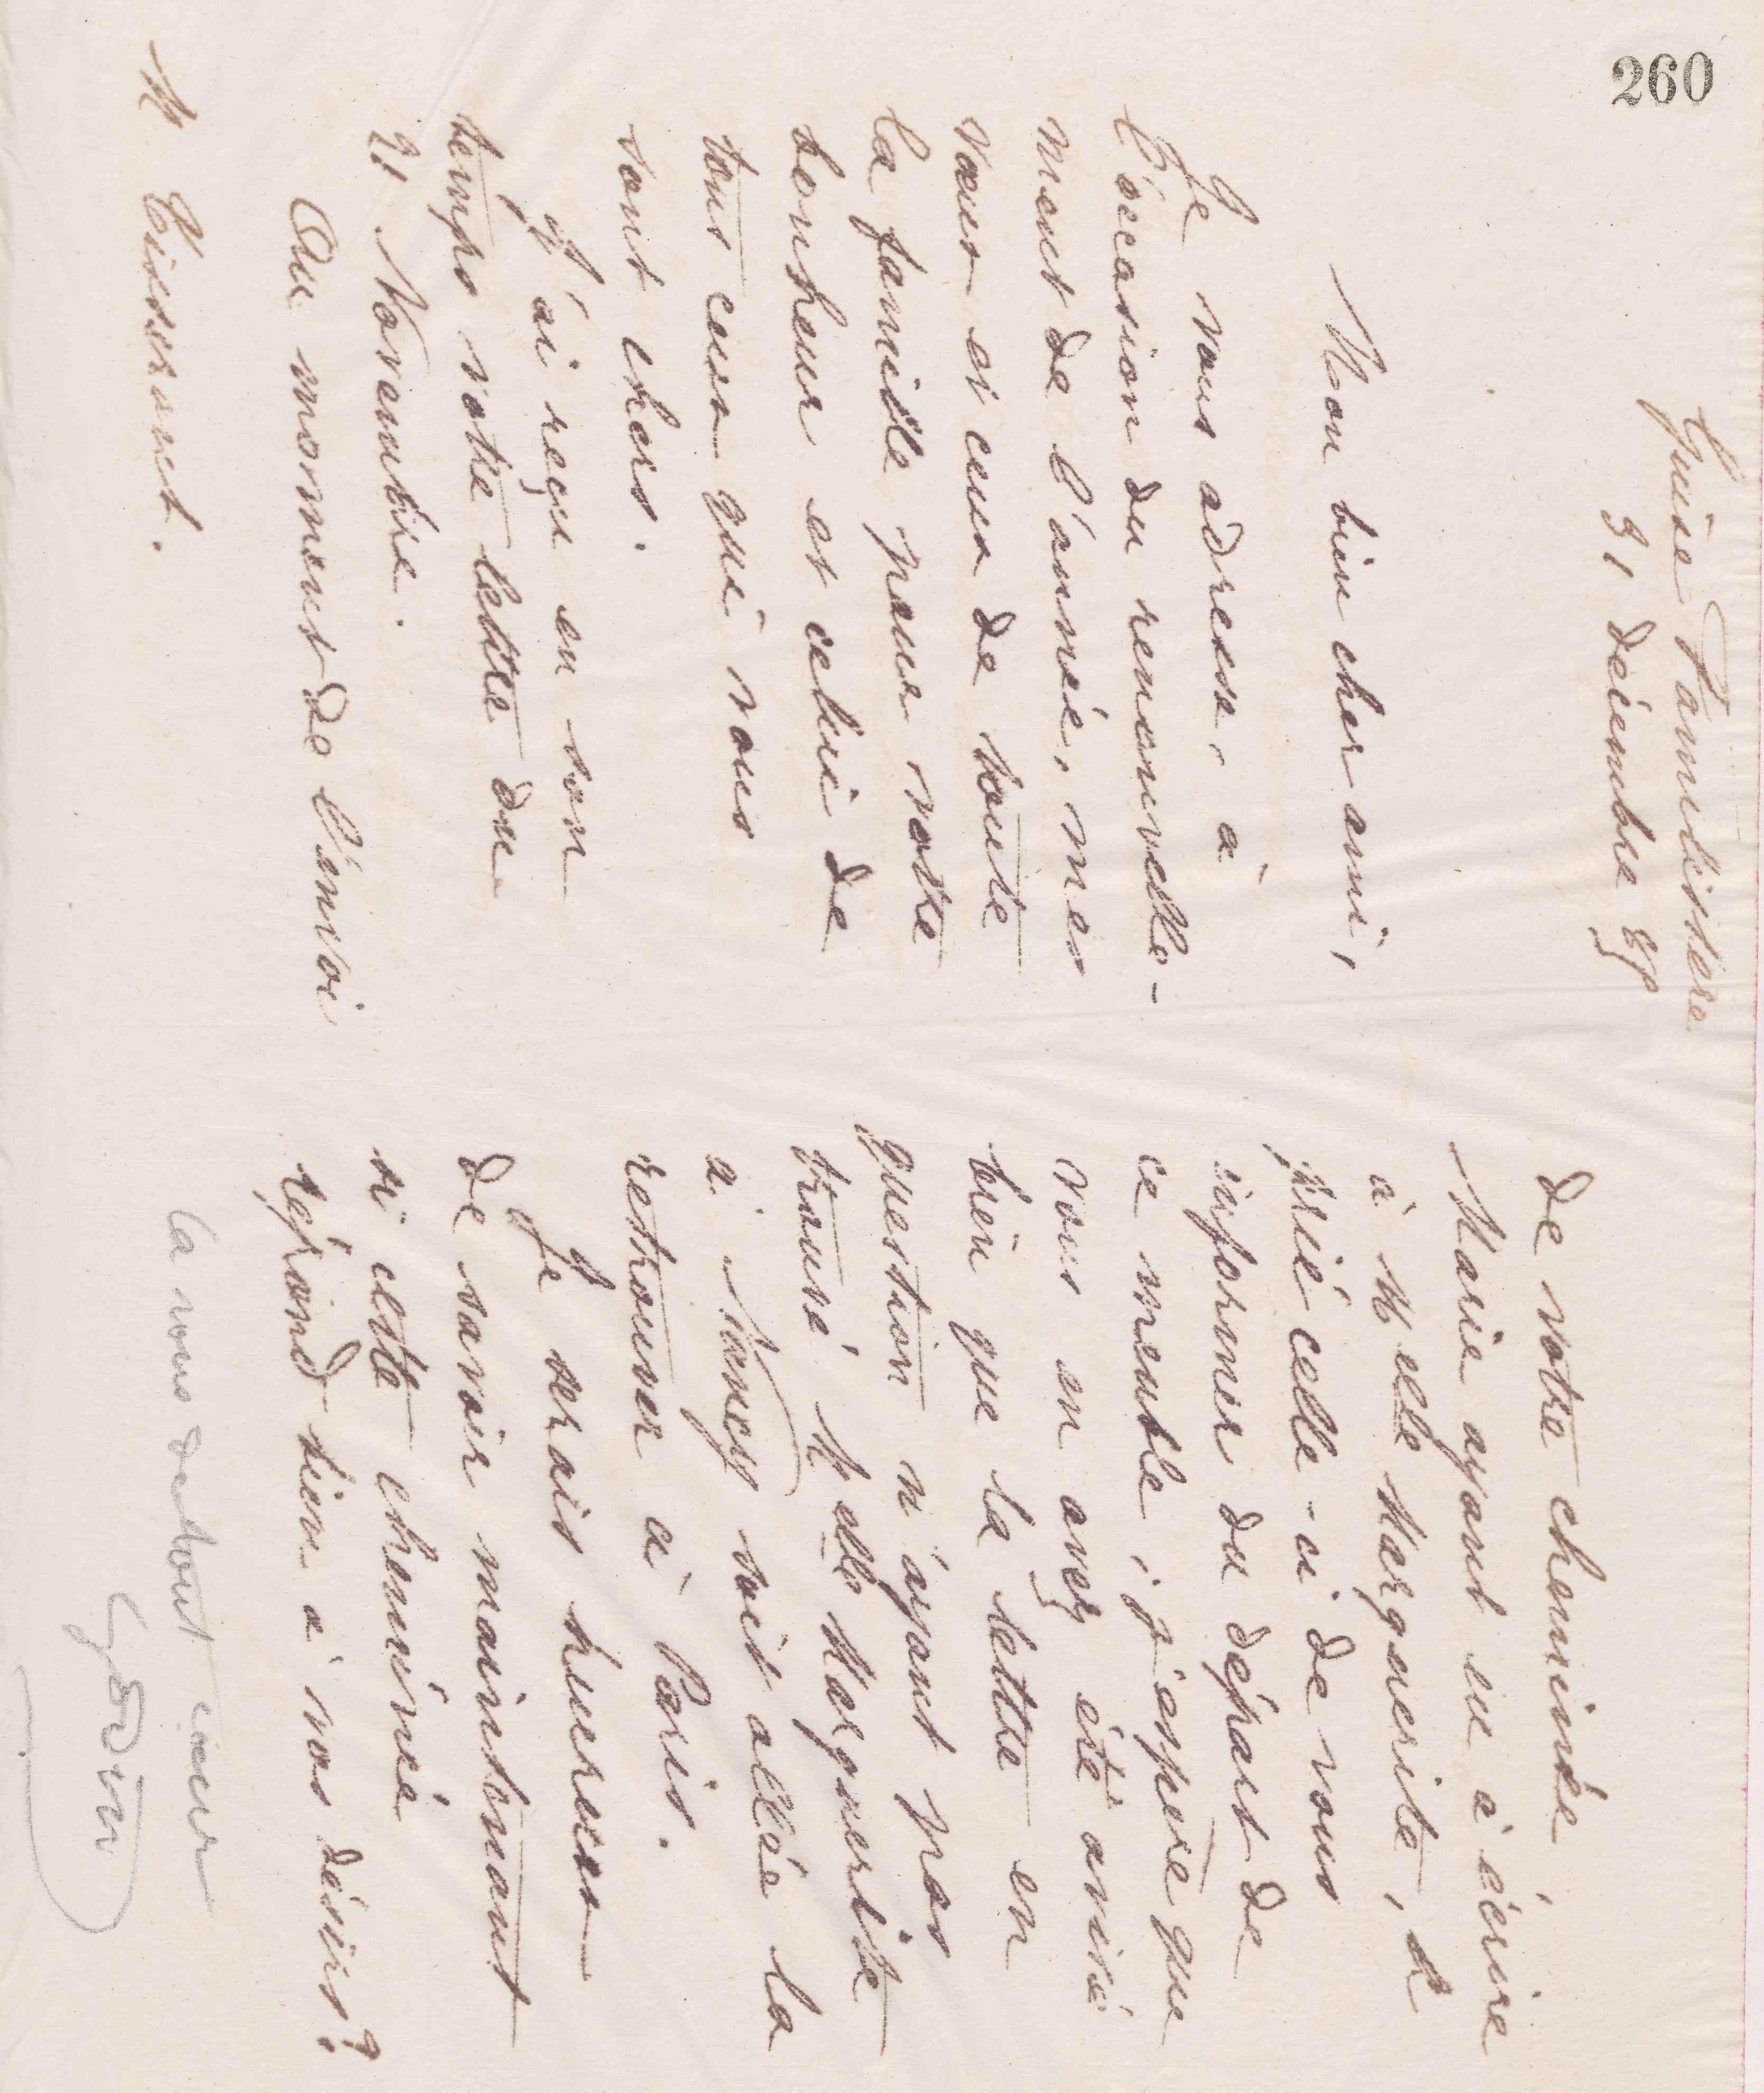 260
Guise Familistère
31 décembre 84
Mon bien cher ami,
Je vous adresse, à
l'occasion du renouvelle-
ment de l'année, mes
vœux et ceux de toute
la famille pour votre
bonheur et celui de
tous ceux qui vous
sont chers.
J'ai reçu en son
temps votre lettre du
21 Novembre.
Au moment de l'envoi
M Tisserant.
de votre cheminée,
Marie ayant eu à écrire
à Melle Marguerite, a
prié celle-ci de vous
informer du départ de
ce meuble; j'espère que
vous en avez été avisé
bien que la lettre en
question n'ayant pas
trouvé Melle Marguerite
à Nancy soit allée la
retrouver à Paris.
Je serais heureux
de savoir maintenant
si cette cheminée
répond bien à vos désirs?
à vous de tout cœur
Godin